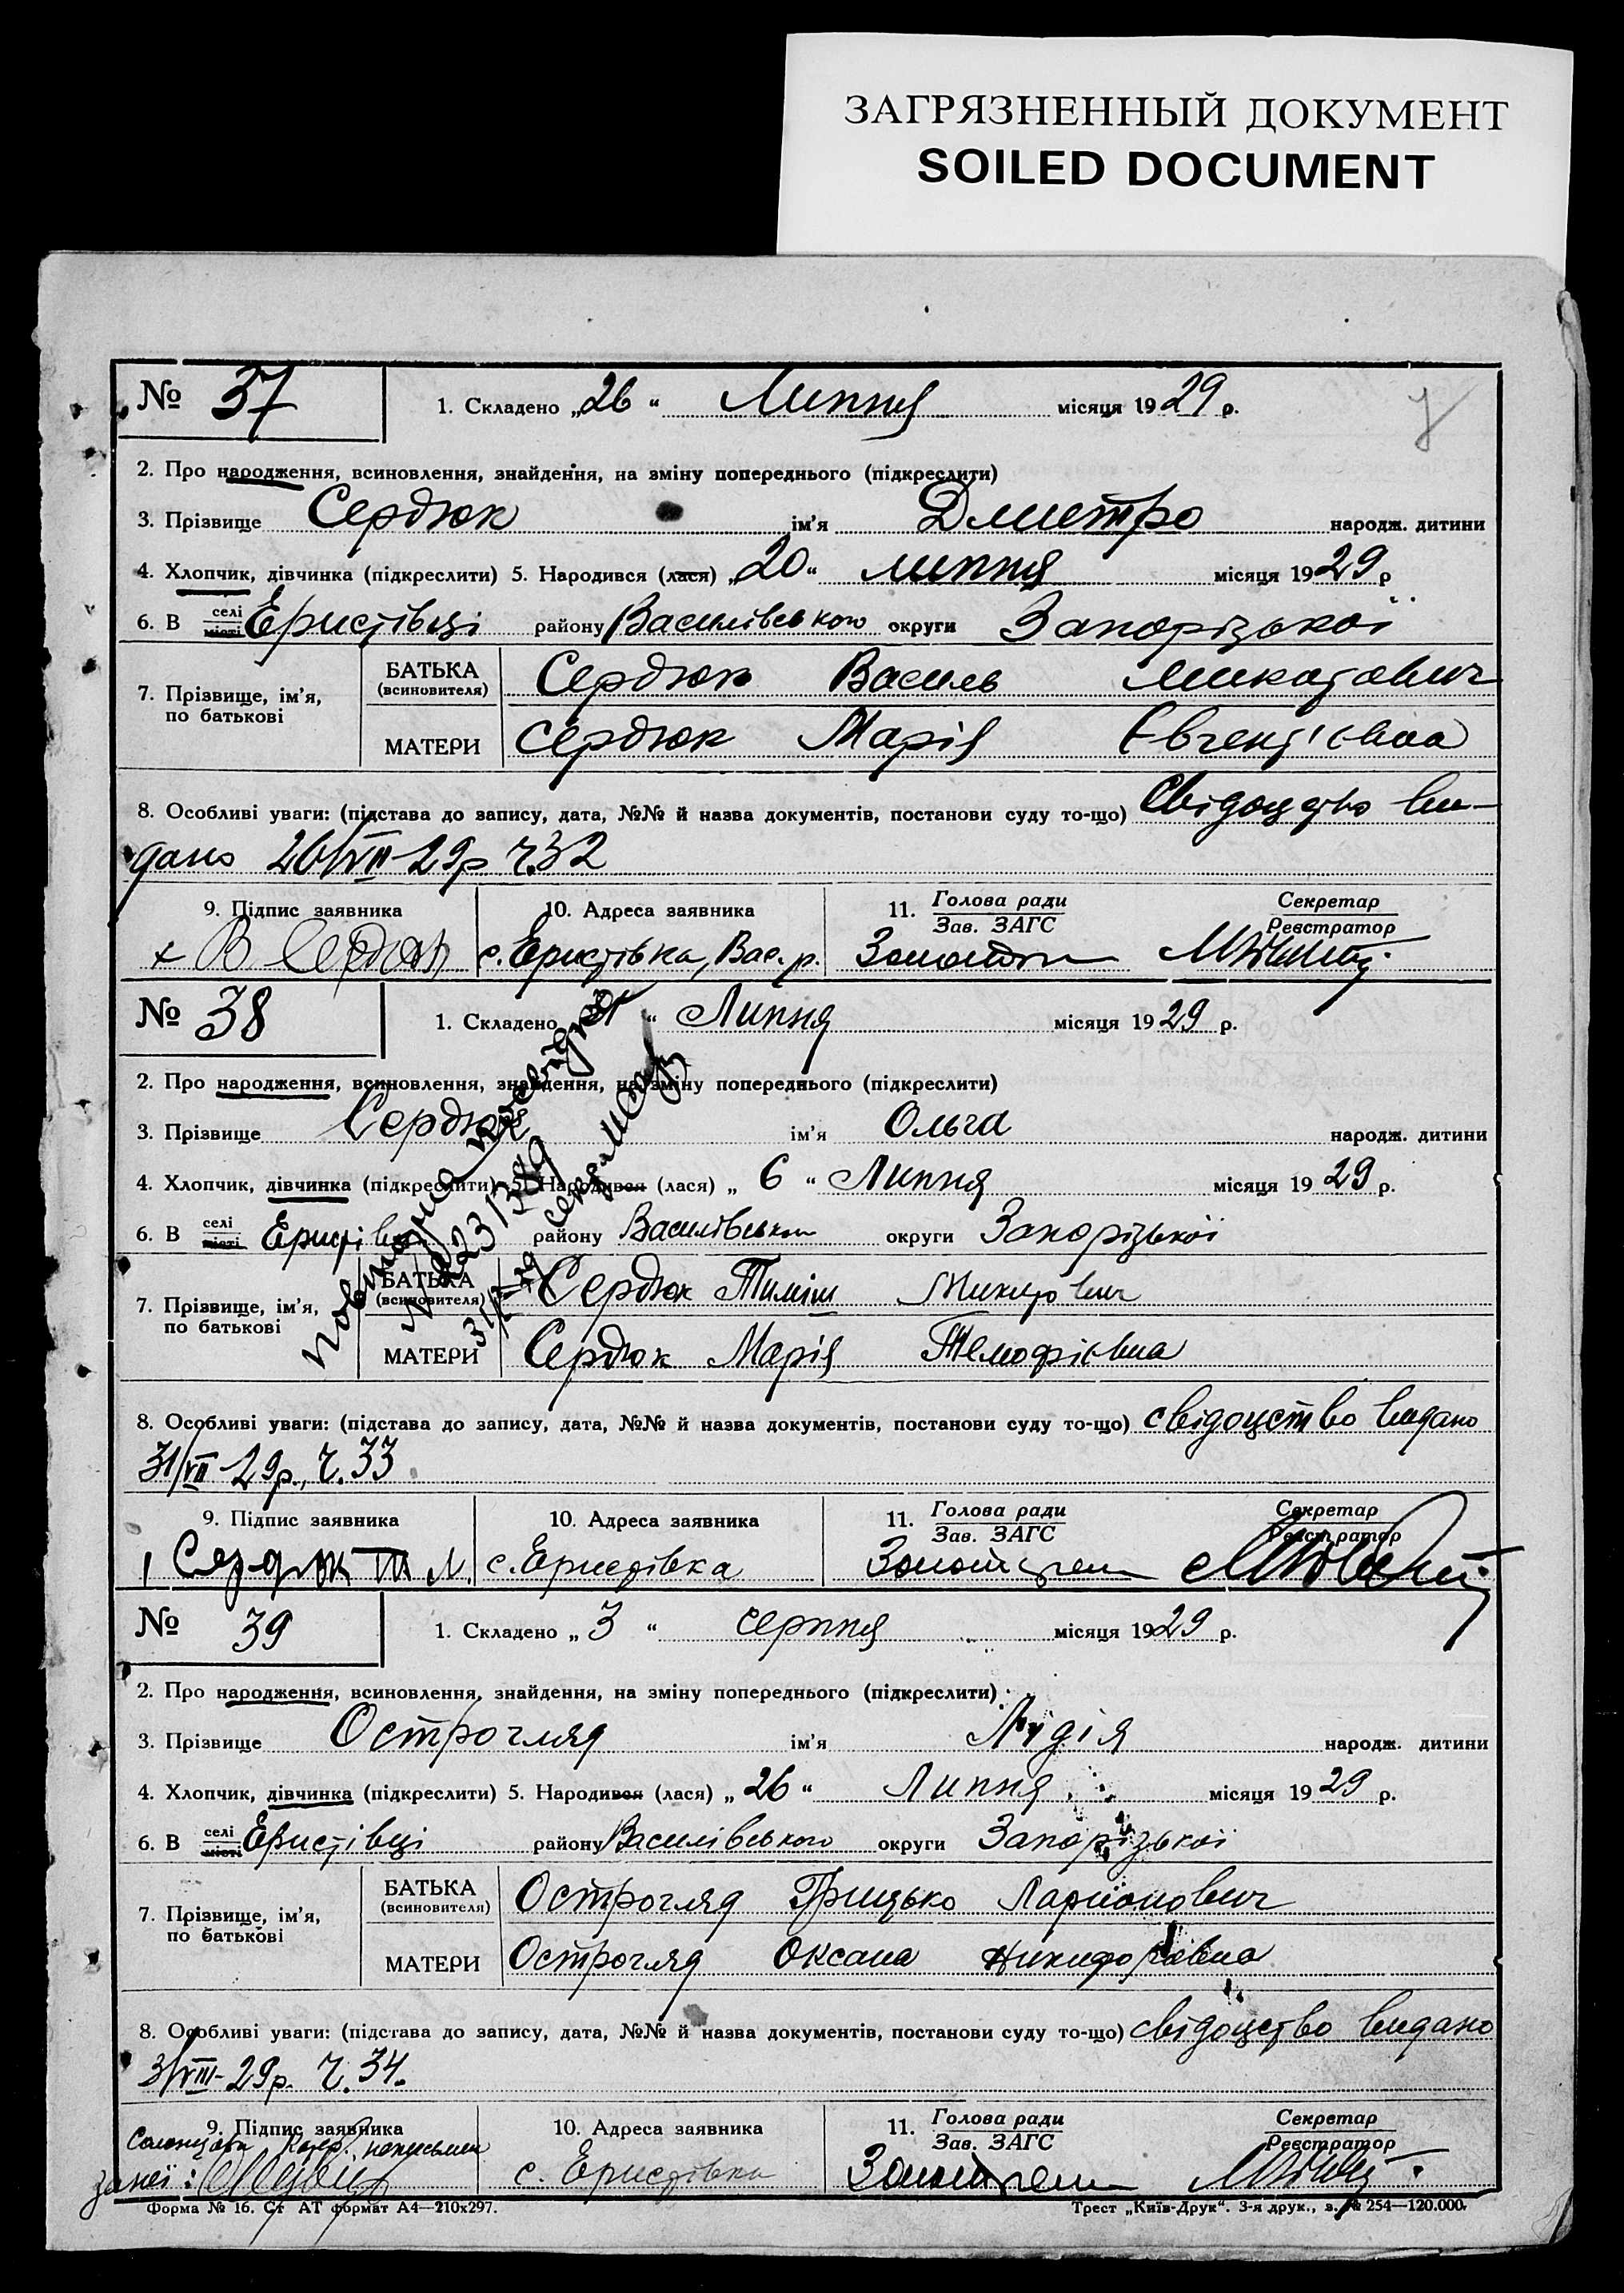 ЗАГРЯЗНЕННЫЙ ДОКУМЕНТ
SOILED DOCUMENT
№ 37
1. Складено „26“ Липня місяця 1929 р.
2. Про народження, всиновлення, знайдення, на зміну попереднього (підкреслити)
3. Прізвище Сердюк ім'я Дмитро народж. дитини
4. Хлопчик, дівчинка (підкреслити) 5. Народився (лася) „20“ липня місяця 1929 р
6. В селі місті Еристівці району Василівського округи Запорізької
7. Прізвище, ім'я, по батькові
БАТЬКА (всиновителя) Сердюк Василь Микитович
МАТЕРИ Сердюк Марія
8. Особливі уваги: (підстава до запису, дата, №№ й назва документів, постанови суду то-що) Свідоцтво ви-
дано 26/VII-29р ч.32
9. Підпис заявника 10. Адреса заявника 11. Голова ради Зав. ЗАГС Секретар Реєстратор
+ В Сердюк с. Еристівка, Вас. р.
№ 38
1. Складено „31“ Липня місяця 1929 р.
2. Про народження, всиновлення, знайдення, на зміну попереднього (підкреслити)
3. Прізвище Сердюк ім'я Ольга народж. дитини
4. Хлопчик, дівчинка (підкреслити) 5. Народився (лася) „6“ Липня місяця 1929 р.
6. В селі місті Еристівці району Василівського округи Запорізької
7. Прізвище, ім'я, по батькові
БАТЬКА (всиновителя) Сердюк Тиміш Микитович
МАТЕРИ Сердюк Марія Тимофієвна
8. Особливі уваги: (підстава до запису, дата, №№ й назва документів, постанови суду то-що) свідоцтво видано
31/VII-29р., ч.33
9. Підпис заявника 10. Адреса заявника 11. Голова ради Зав. ЗАГС Секретар Реєстратор
Сердюк Т М. с. Еристівка
№ 39
1. Складено „3“ серпня місяця 1929 р.
2. Про народження, всиновлення, знайдення, на зміну попереднього (підкреслити)
3. Прізвище Острогляд ім'я Лидія народж. дитини
4. Хлопчик, дівчинка (підкреслити) 5. Народився (лася) „26“ Липня місяця 1929 р.
6. В селі місті Еристівці району Василівського округи Запорізької
7. Прізвище, ім'я, по батькові
БАТЬКА (всиновителя) Острогляд Грицько Ларионович
МАТЕРИ Острогляд Оксана Никифоровна
8. Особливі уваги: (підстава до запису, дата, №№ й назва документів, постанови суду то-що) свідоцтво видано
3/VIII-29р. ч.34.
9. Підпис заявника 10. Адреса заявника 11. Голова ради Зав. ЗАГС Секретар Реєстратор
с. Еристівка
Форма № 16. Ст АТ формат А4—210х297.
Трест „Київ-Друк“. 3-я друк., з. № 254—120.000.